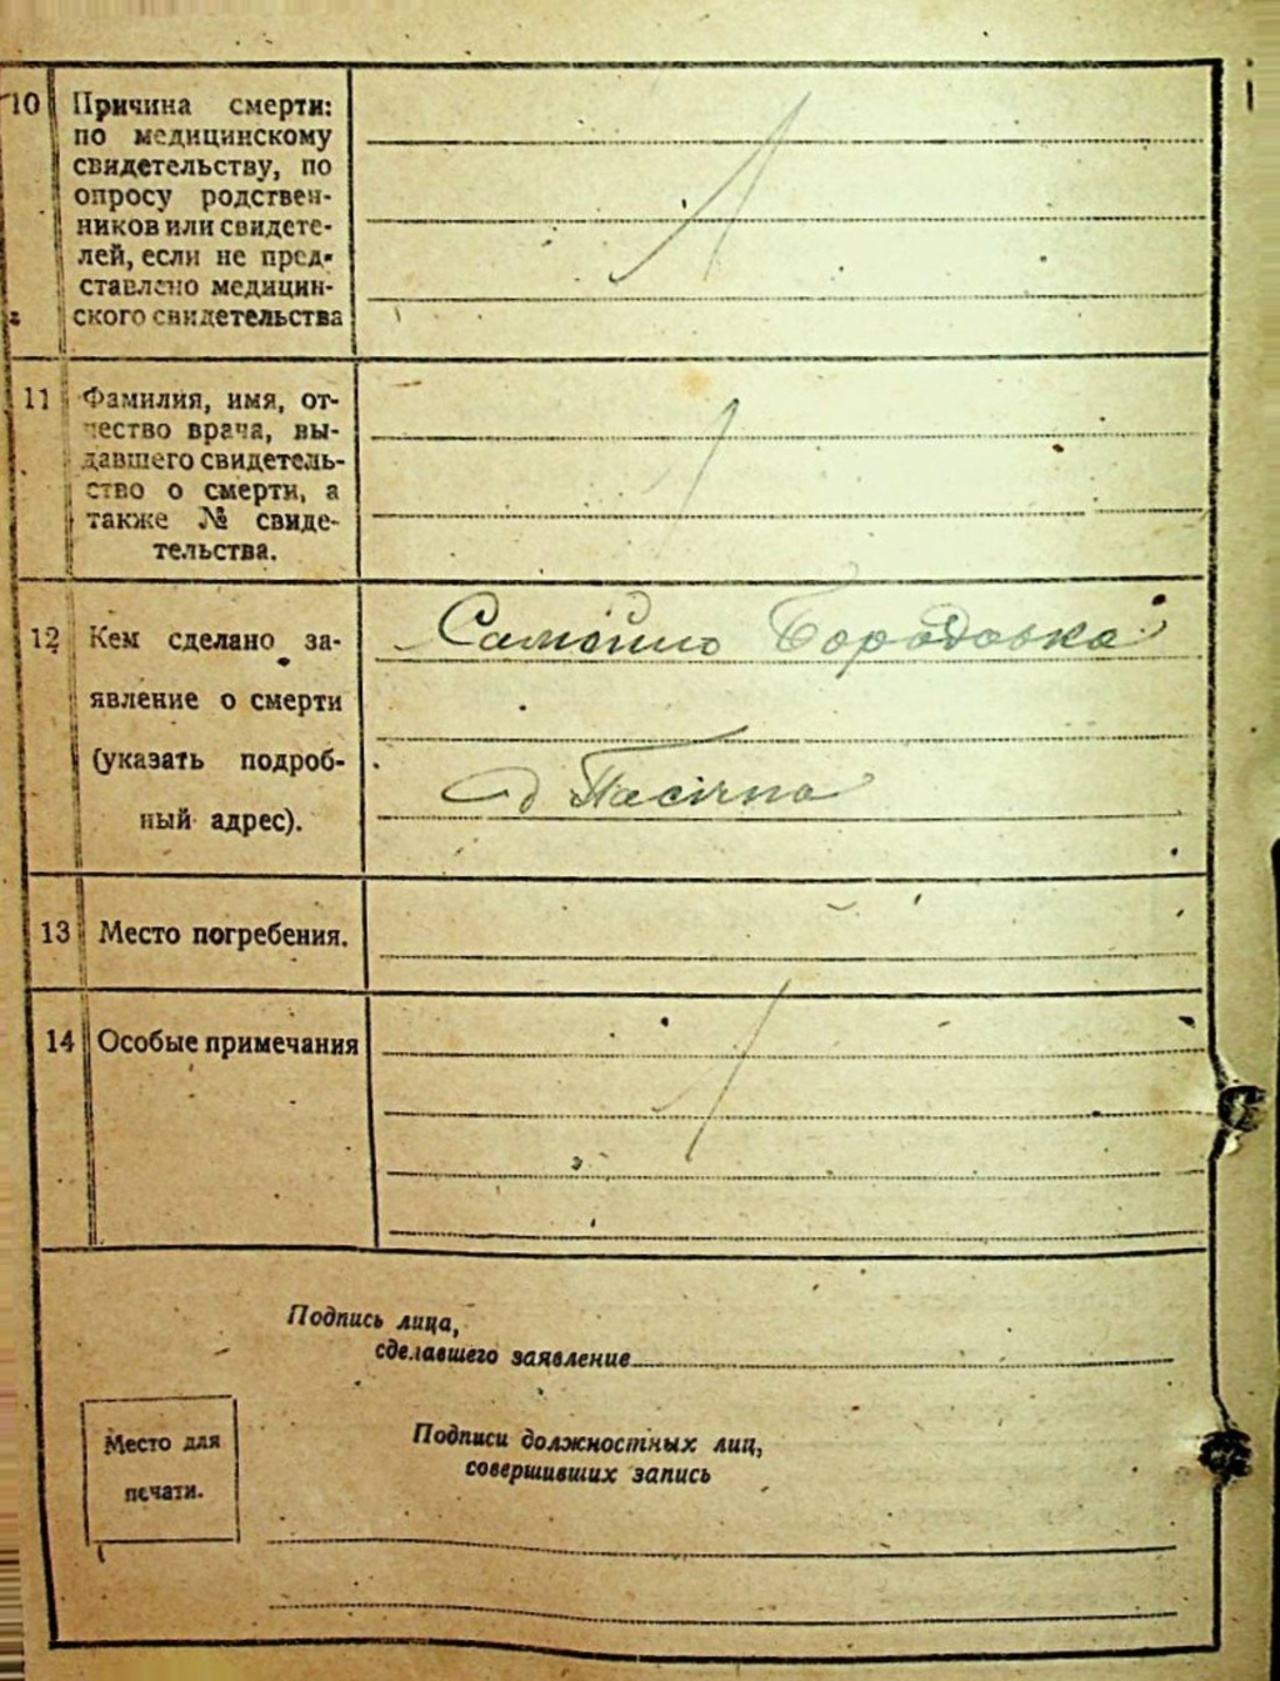 10 Причина смерти:
по медицинскому
свидетельству, по
опросу родствен-
ников или свидете-
лей, если не пред-
ставлено медицин-
ского свидетельства
11 Фамилия, имя, от-
чество врача, вы-
давшего свидетель-
ство о смерти, а
также № свиде-
тельства.
12 Кем сделано за-
явление о смерти
(указать подроб-
ный адрес).
Самойло Бородовка
Пасічна
13 Место погребения.
14 Особые примечания
Подпись лица,
сделавшего заявление
Место для
печати.
Подписи должностных лиц,
совершивших запись